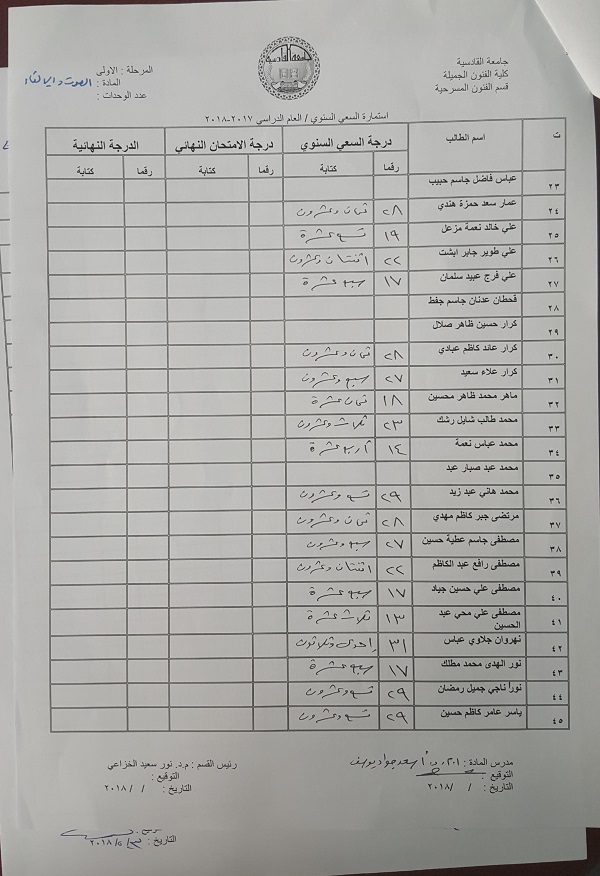 جامعة القادسية
كلية الفنون الجميلة
قسم الفنون المسرحية
المرحلة : الاولى
المادة : الصوت والالقاء
عدد الوحدات :
استمارة السعي السنوي / العام الدراسي ٢٠١٧-٢٠١٨
ت اسم الطالب درجة السعي السنوي درجة الامتحان النهائي الدرجة النهائية
رقما كتابة رقما كتابة رقما كتابة
٢٣ عباس فاضل جاسم حبيب
٢٤ عمار سعد حمزة هندي ٢٨ ثمان وعشرون
٢٥ علي خالد نعمة مزعل ١٩ تسع عشرة
٢٦ علي طوير جابر ابشت ٢٢ اثنتان وعشرون
٢٧ علي فرج عبيد سلمان ١٧ سبع عشرة
٢٨ قحطان عدنان جاسم جفط
٢٩ كرار حسين ظاهر صلال
٣٠ كرار عائد كاظم عبادي ٢٨ ثمان وعشرون
٣١ كرار علاء سعيد ٢٧ سبع وعشرون
٣٢ ماهر محمد ظاهر محسين ١٨ ثمان عشرة
٣٣ محمد طالب شايل رشك ٢٣ ثلاث وعشرون
٣٤ محمد عباس نعمة ١٤ أربع عشرة
٣٥ محمد عبد صبار عبد
٣٦ محمد هاني عبد زيد ٢٩ تسع وعشرون
٣٧ مرتضى جبر كاظم مهدي ٢٨ ثمان وعشرون
٣٨ مصطفى جاسم عطية حسين ٢٧ سبع وعشرون
٣٩ مصطفى رافع عبد الكاظم ٢٢ اثنتان وعشرون
٤٠ مصطفى علي حسين جياد ١٧ سبع عشرة
٤١ مصطفى علي محي عبد الحسين ١٣ ثلاث عشرة
٤٢ نهروان جلاوي عباس ٣١ إحدى وثلاثون
٤٣ نور الهدى محمد مطلك ١٧ سبع عشرة
٤٤ نورا ناجي جميل رمضان ٢٩ تسع وعشرون
٤٥ ياسر عامر كاظم حسين ٢٩ تسع وعشرون
مدرس المادة : أسعد جواد يوسف
التوقيع :
التاريخ : / / ٢٠١٨
رئيس القسم : م.د. نور سعيد الخزاعي
التوقيع :
التاريخ : / / ٢٠١٨
التاريخ :